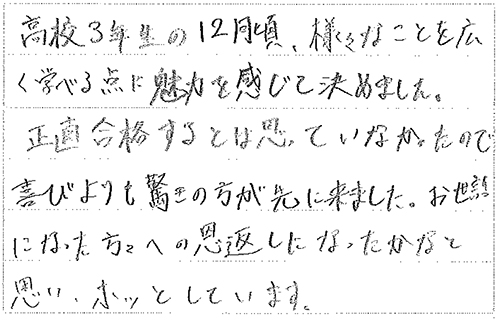 高校3年生の12月頃、様々なことを広
く学べる点に魅力を感じて決めました。
正直合格するとは思っていなかったので
喜びよりも驚きの方が先に来ました。お世話
になった方々への恩返しになったかなと
思い、ホッとしています。